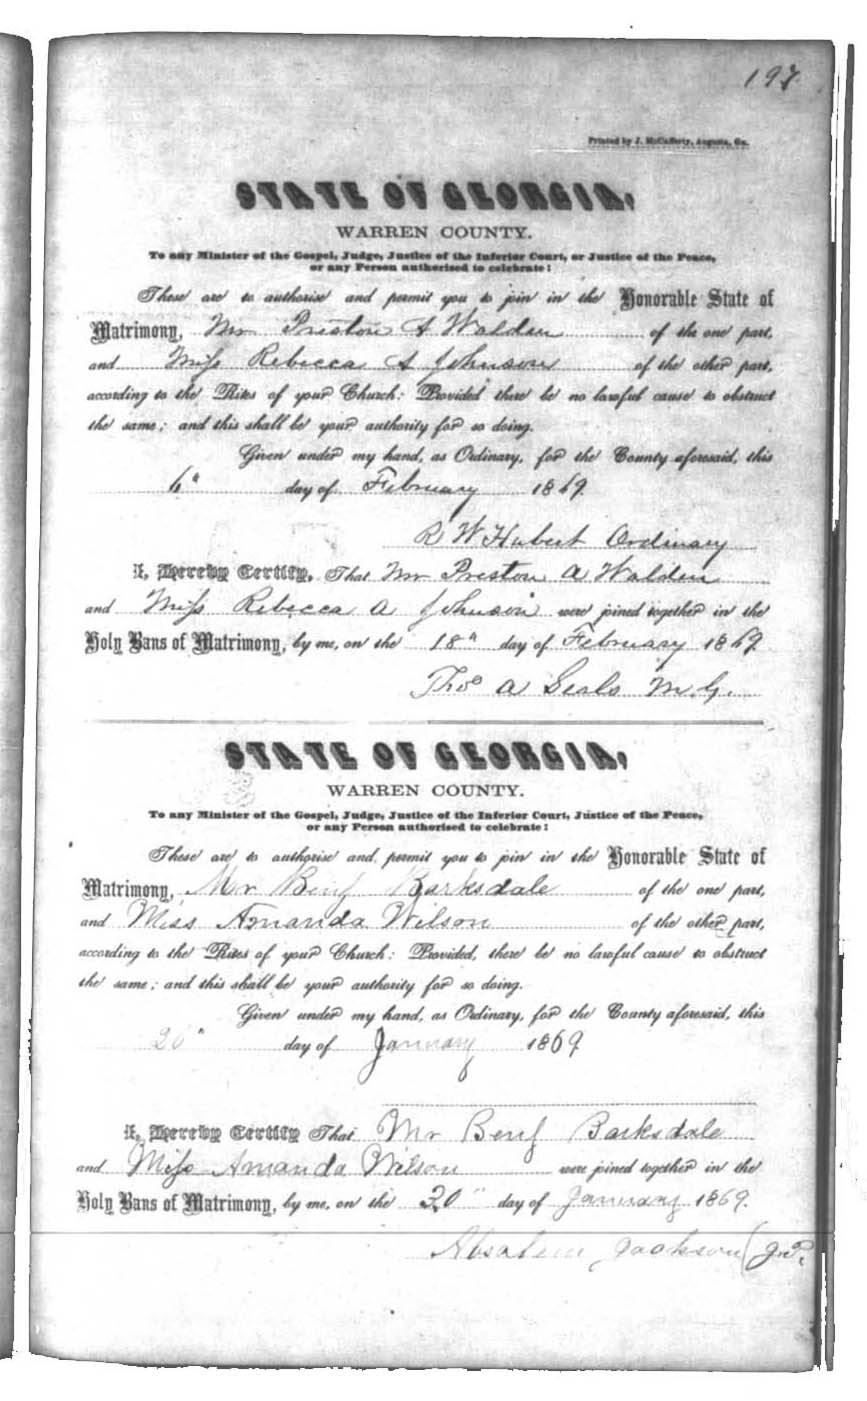 197
Printed by J. McCafferty, Augusta, Ga.
STATE OF GEORGIA,
WARREN COUNTY.
To any Minister of the Gospel, Judge, Justice of the Inferior Court, or Justice of the Peace,
or any Person authorised to celebrate:
These are to authorise and permit you to join in the Honorable State of
Matrimony, Mr Preston A Walden of the one part,
and Miss Rebecca A Johnson of the other part,
according to the Rites of your Church: Provided there be no lawful cause to obstruct
the same; and this shall be your authority for so doing.
Given under my hand, as Ordinary, for the County aforesaid, this
6" day of February 1869
R W Hubert Ordinary
I, Hereby Certify, That Mr Preston A Walden
and Miss Rebecca A Johnson were joined together in the
Holy Bans of Matrimony, by me, on the 18" day of February 1869
Thos A Seals M.G.
STATE OF GEORGIA,
WARREN COUNTY.
To any Minister of the Gospel, Judge, Justice of the Inferior Court, Justice of the Peace,
or any Person authorised to celebrate:
These are to authorise and permit you to join in the Honorable State of
Matrimony, Mr Benj Barksdale of the one part,
and Miss Amanda Wilson of the other part,
according to the Rites of your Church: Provided, there be no lawful cause to obstruct
the same; and this shall be your authority for so doing.
Given under my hand, as Ordinary, for the County aforesaid, this
20" day of January 1869
I, Hereby Certify That Mr Benj Barksdale
and Miss Amanda Wilson were joined together in the
Holy Bans of Matrimony, by me, on the 20" day of January 1869.
Absalem Jackson (J.P.